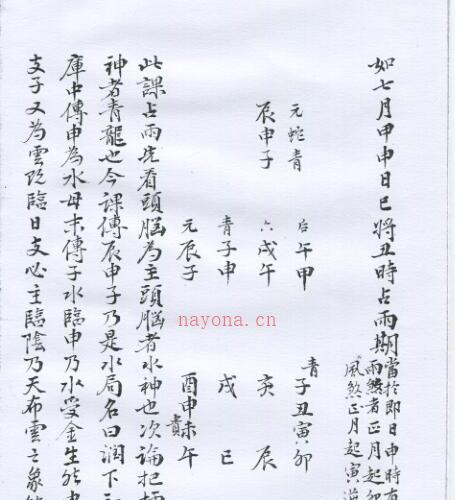 如七月甲申日巳將丑時占雨期
當於即日申時
雨煞者正月起卯
風煞正月起寅逆
元蛇青
辰申子
后午甲
六戌午
青子申
元辰子
青子丑寅卯
亥 辰
戌 巳
酉申未午
貴
此課占雨先看頭腦為主頭腦者水神也次論把柄
神者青龍也今課傳辰申子乃是水局名曰潤下
庫中傳申為水母末傳子水臨申乃水受金生然
支子又為雲既臨日支必主臨陰乃天布雲之象
nayona.cn